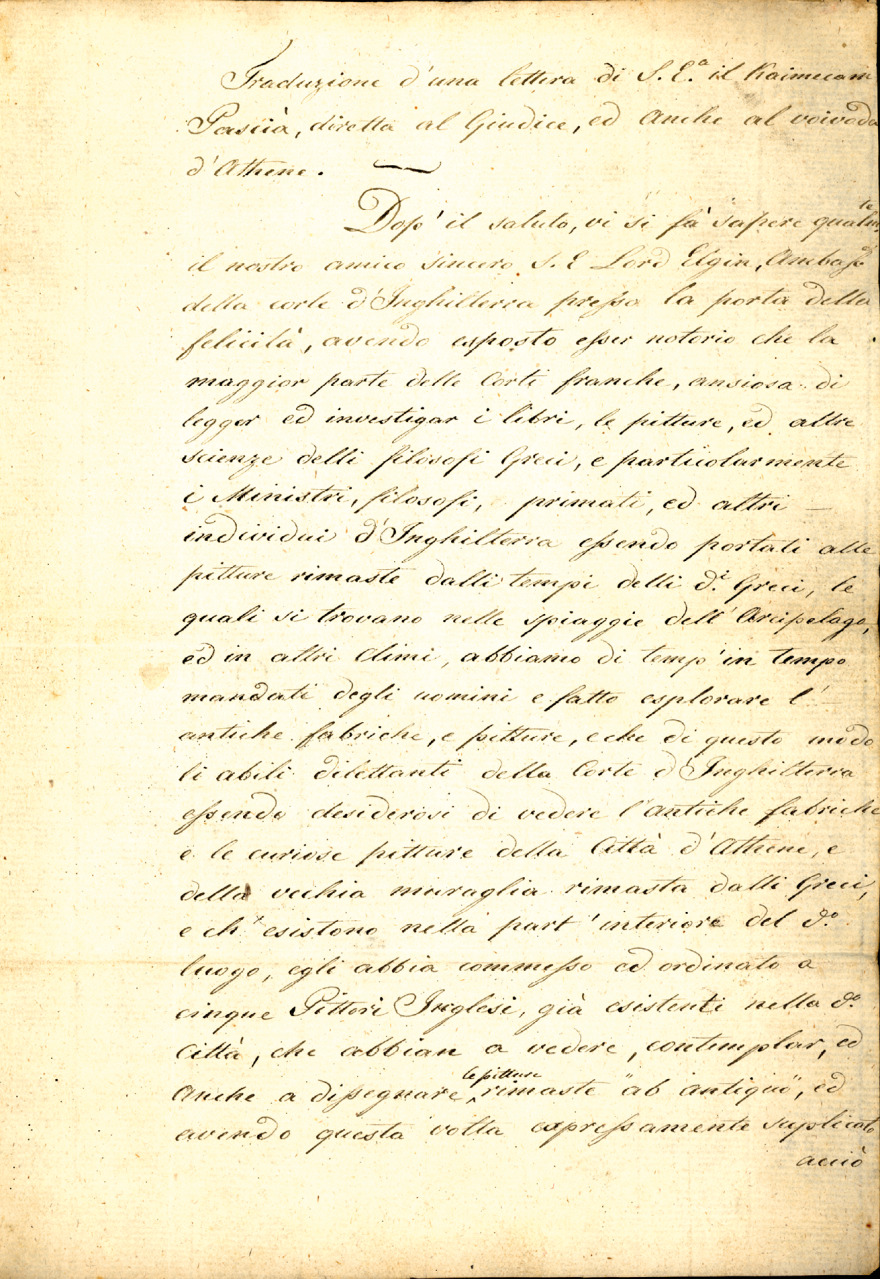 Traduzione d'una lettera di S. E.a il Kaimecam
Pascià, diretta al Giudice, ed anche al voivoda
d'Athene. —
Dop' il saluto, vi si fà sapere qualmte
il nostro amico sincero S. E Lord Elgin, Ambasre
della corte d'Inghilterra presso la porta della
felicità, avendo esposto esser notorio che la
maggior parte delle Corti franche, ansiosa di
legger ed investigar i libri, le pitture, ed altre
scienze delli filosofi Greci, e particolarmente
i Ministri, filosofi, primati, ed altri —
individui d'Inghilterra essendo portati alle
pitture rimaste dalli tempi delli d.i Greci, le
quali si trovano nelle spiaggie dell'Arcipelago,
ed in altri climi, abbiano di temp' in tempo
mandati degli uomini e fatto esplorare l'
antiche fabriche, e pitture, e che di questo modo
li abili dilettanti della Corte d'Inghilterra
essendo desiderosi di vedere l'antiche fabriche
e le curiose pitture della Città d'Athene, e
della vechia muraglia rimasta dalli Greci,
e ch' esistono nella part' interiore del d.o
luogo, egli abbia commesso ed ordinato a
cinque Pittori Inglesi, già esistenti nella d.a
Città, che abbian a vedere, contemplar, ed
anche a dissegnare le pitture rimaste "ab antiquo", ed
avendo questa volta espressamente suplicato
acciò